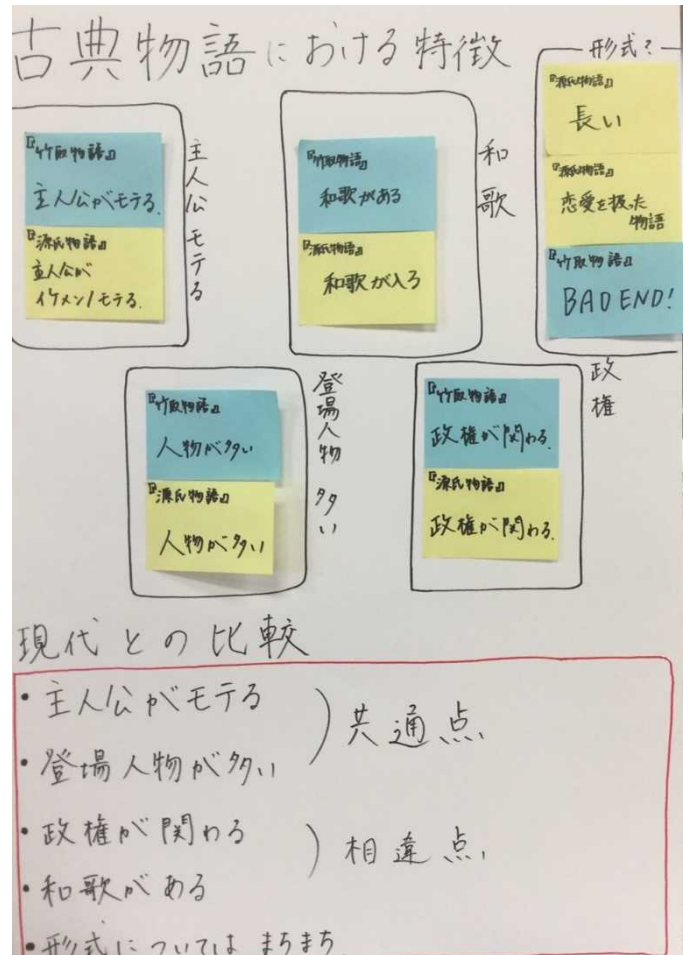 古典物語における特徴
『竹取物語』
主人公がモテる.
『源氏物語』
主人公が
イケメン/モテる.
主人公モテる
『竹取物語』
和歌がある
『源氏物語』
和歌が入る
和歌
形式?
『源氏物語』
長い
『源氏物語』
恋愛を扱った
物語
『竹取物語』
BAD END!
『竹取物語』
人物が多い
『源氏物語』
人物が多い
登場人物 多い
『竹取物語』
政権が関わる.
『源氏物語』
政権が関わる.
政権
現代との比較
・主人公がモテる
・登場人物が多い
共通点
・政権が関わる
・和歌がある
相違点
・形式についてはまちまち